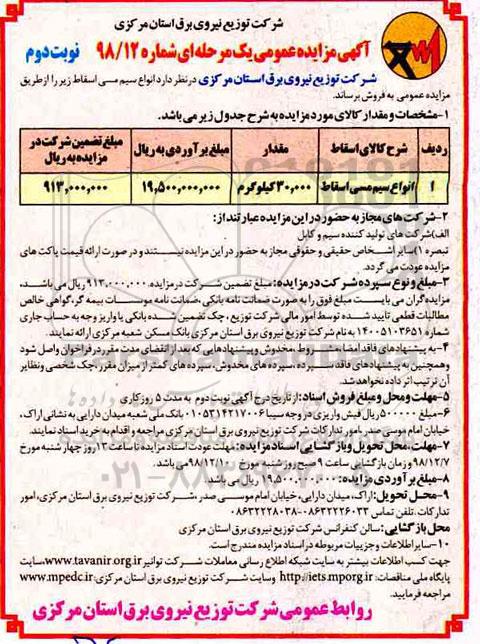 شرکت توزیع نیروی برق استان مرکزی
آگهی مزایده عمومی یک مرحله‌ای شماره ۹۸/۱۲ نوبت دوم
شرکت توزیع نیروی برق استان مرکزی در نظر دارد انواع سیم مسی اسقاط زیر را از طریق
مزایده عمومی به فروش برساند.
۱-مشخصات و مقدار کالای مورد مزایده به شرح جدول زیر می باشد.
ردیف شرح کالای اسقاط مقدار مبلغ برآوردی به ریال مبلغ تضمین شرکت در مزایده به ریال
۱ انواع سیم مسی اسقاط ۳۰,۰۰۰ کیلوگرم ۱۹,۵۰۰,۰۰۰,۰۰۰ ۹۱۳,۰۰۰,۰۰۰
۲-شرکت های مجاز به حضور در این مزایده عبارتنداز:
الف)شرکت های تولید کننده سیم و کابل
تبصره ۱)سایر اشخاص حقیقی و حقوقی مجاز به حضور در این مزایده نیستند و در صورت ارائه قیمت پاکت های
مزایده عودت می گردد.
۳-مبلغ و نوع سپرده شرکت در مزایده: مبلغ تضمین شرکت در مزایده ۹۱۳,۰۰۰,۰۰۰ ریال می باشد،
مزایده گران می بایست مبلغ فوق را به صورت ضمانت نامه بانکی، ضمانت نامه موسسات بیمه گر، گواهی خالص
مطالبات قطعی تایید شده توسط امور مالی شرکت توزیع، چک تضمین شده بانکی یا واریز وجه به حساب جاری
شماره ۱۴۰۰۵۱۰۳۶۵۱ به نام شرکت توزیع نیروی برق استان مرکزی بانک مسکن شعبه مرکزی ارائه نمایند.
۴-به پیشنهادهای فاقد امضا، مشروط، مخدوش و پیشنهادهایی که بعد از انقضای مدت مقرر در فراخوان واصل شود
وهمچنین به پیشنهادهای فاقد سپرده، سپرده های مخدوش، سپرده های کمتر از میزان مقرر، چک شخصی و نظایر
آن ترتیب اثر داده نخواهد شد.
۵-مهلت ومحل و مبلغ فروش اسناد: از تاریخ درج آگهی نوبت دوم به مدت ۵ روز کاری
۶-مبلغ ۵۰۰۰۰۰ ریال فیش واریزی در وجه سیبا ۰۱۰۵۳۱۴۲۱۷۰۰۶ بانک ملی شعبه میدان دارایی به نشانی اراک،
خیابان امام موسی صدر، امور تدارکات شرکت توزیع نیروی برق استان مرکزی مراجعه و اقدام به خرید اسناد نمایند.
۷-مهلت، محل تحویل و بازگشایی اسناد مزایده: مهلت عودت اسناد مزایده تا ساعت ۱۳ روز چهار شنبه مورخ
۹۸/۱۲/۷ و زمان بازگشایی ساعت ۹ صبح روز شنبه مورخ ۹۸/۱۲/۱۰ می باشد.
۸-مبلغ برآوردی مزایده: ۱۹,۵۰۰,۰۰۰,۰۰۰ ریال می باشد
۹-محل تحویل: اراک، میدان دارایی، خیابان امام موسی صدر، شرکت توزیع نیروی برق استان مرکزی، امور
تدارکات، تلفن تماس ۰۸۶۳۲۲۲۶۰۳۳-۰۸۶۳۲۲۲۸۰۳۸
محل بازگشایی: سالن کنفرانس شرکت توزیع نیروی برق استان مرکزی
۱۰-سایر اطلاعات و جزییات مربوطه در اسناد مزایده مندرج است.
جهت کسب اطلاعات بیشتر به سایت شبکه اطلاع رسانی معاملات شرکت توانیر www.tavanir.org.ir، سایت
پایگاه ملی مناقصات: http://iets.mporg.ir وسایت شرکت توزیع نیروی برق استان مرکزی: www.mpedc.ir
مراجعه فرمایید.
روابط عمومی شرکت توزیع نیروی برق استان مرکزی
۰۲۱-۸۸۳